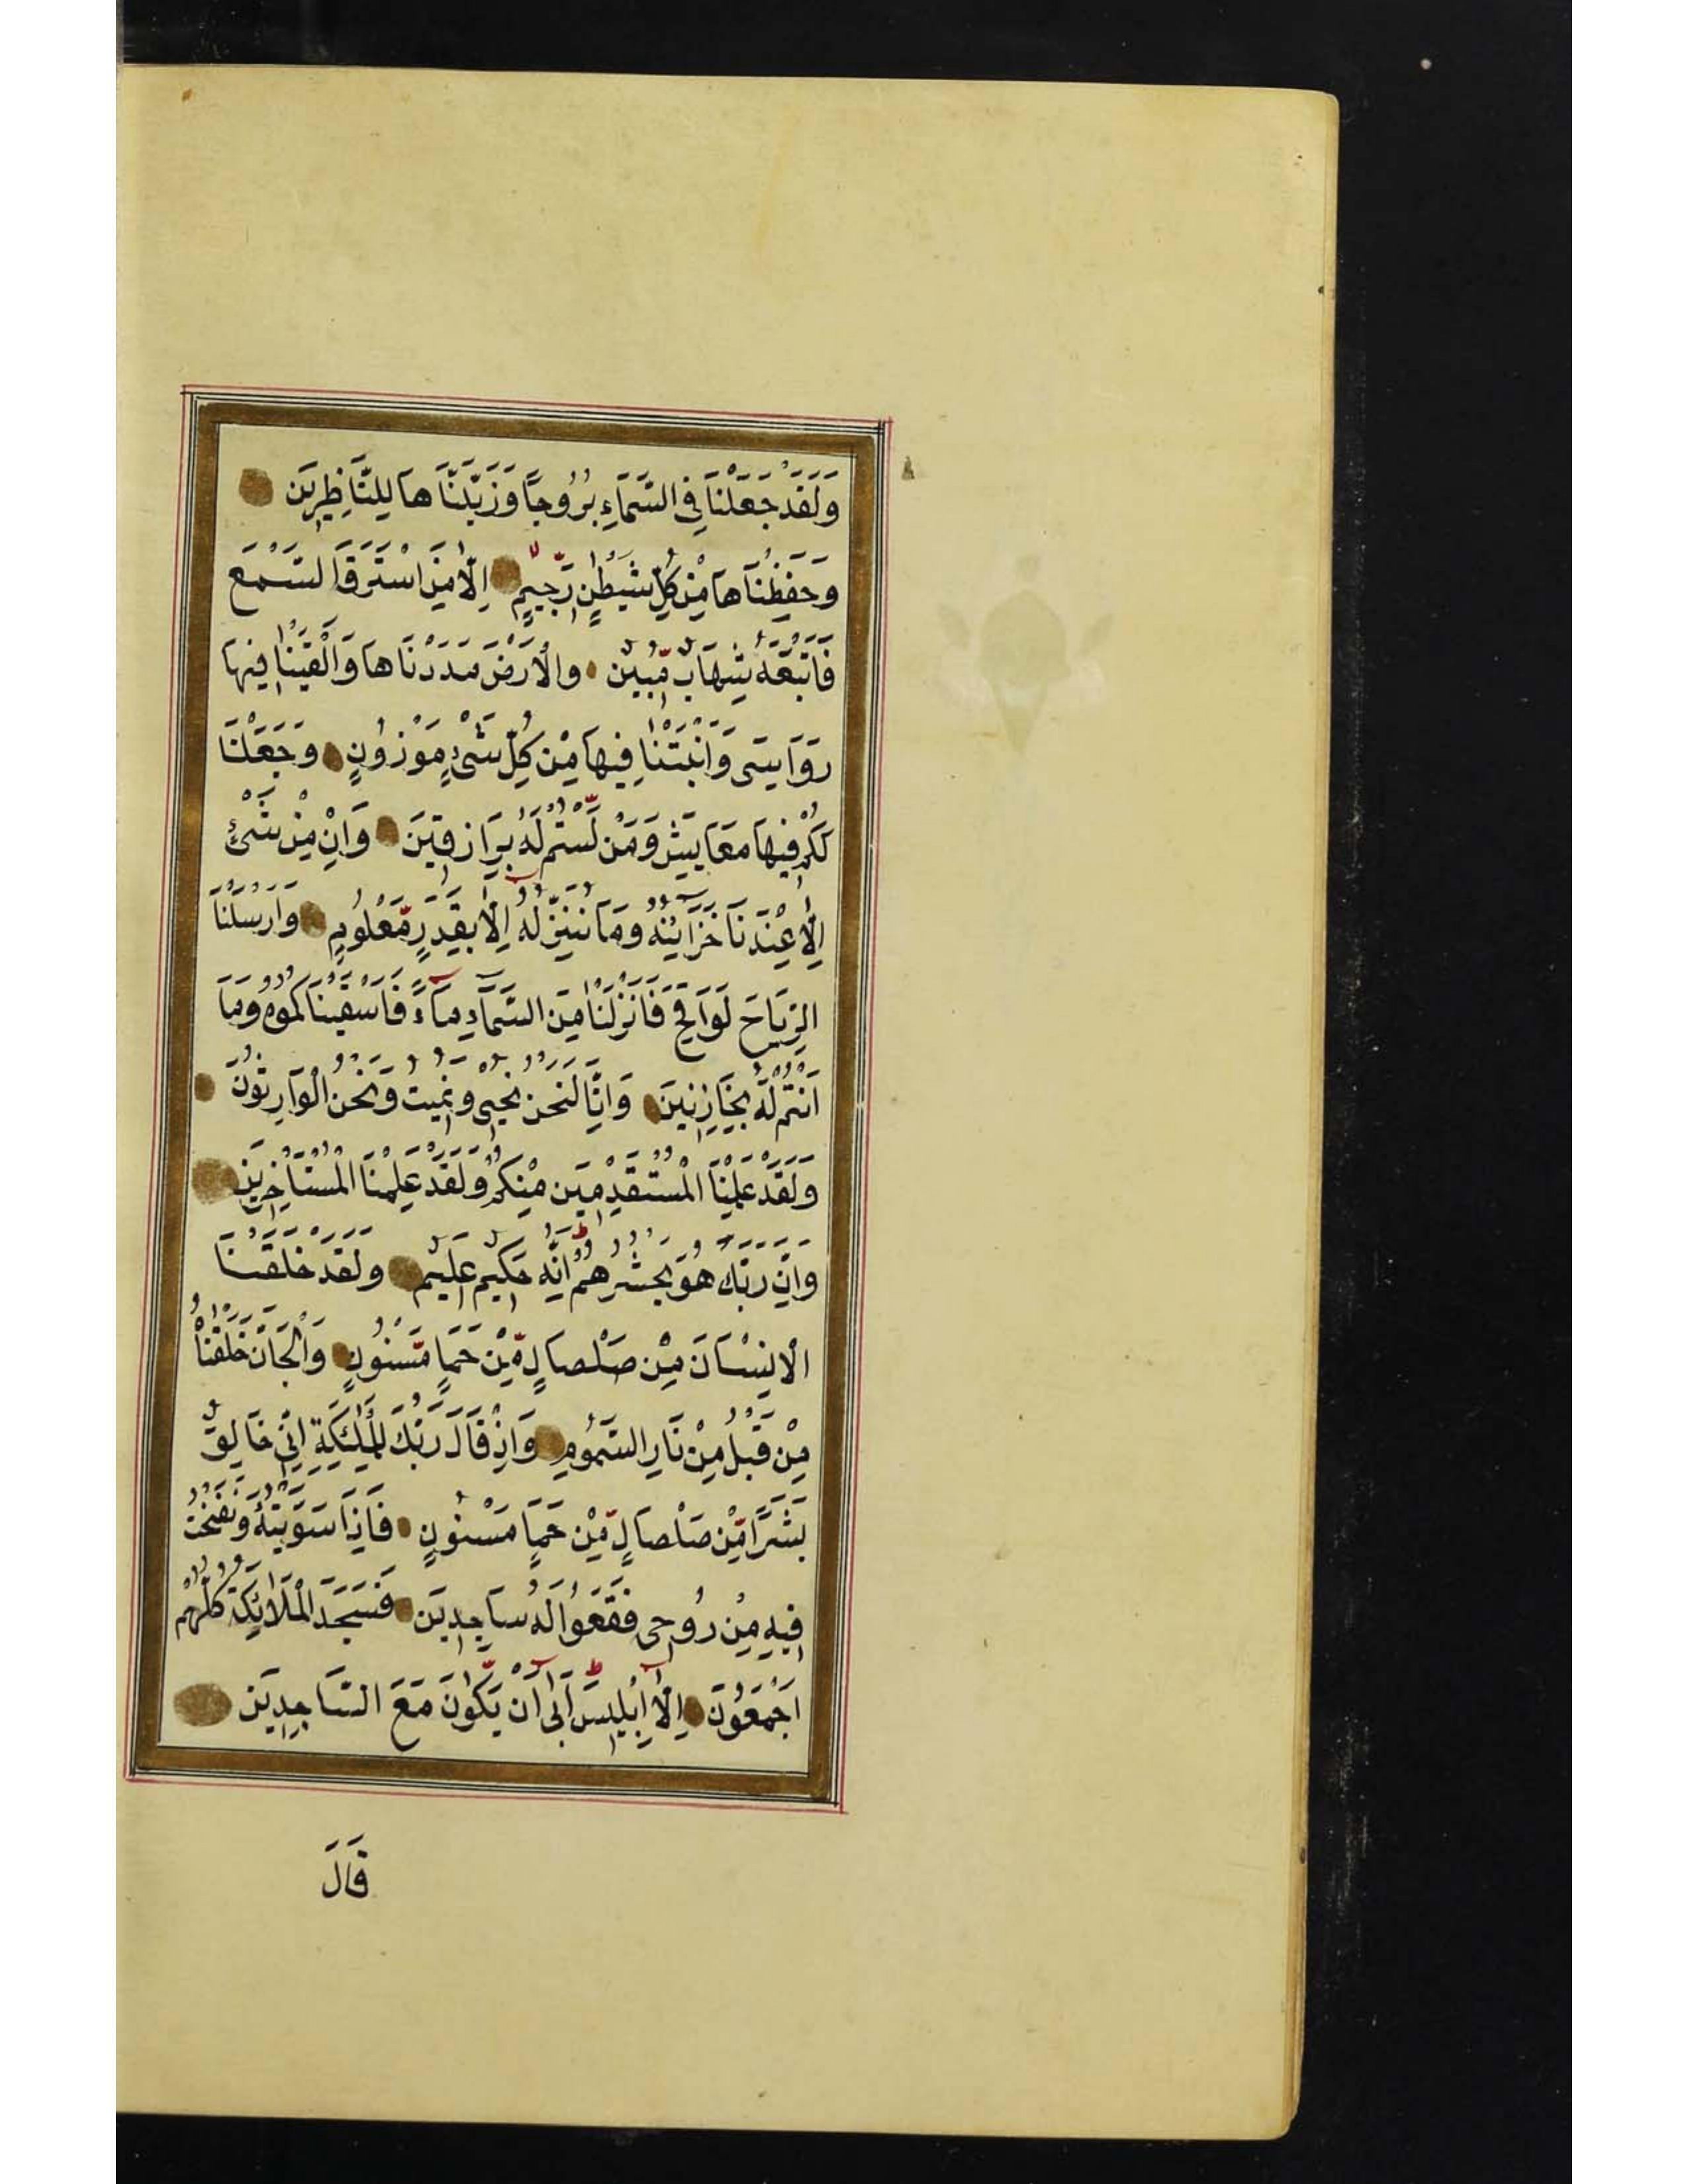 وَلَقَدْ جَعَلْنَا فِى السَّمَاءِ بُرُوجًا وَزَيَّنَّاهَا لِلنَّاظِرِينَ
وَحَفِظْنَاهَا مِنْ كُلِّ شَيْطٰنٍ رَّجِيمٍ اِلَّا مَنِ اسْتَرَقَ السَّمْعَ
فَاَتْبَعَهُ شِهَابٌ مُّبِينٌ وَالْاَرْضَ مَدَدْنَاهَا وَاَلْقَيْنَا فِيهَا
رَوَاسِىَ وَاَنْبَتْنَا فِيهَا مِنْ كُلِّ شَىْءٍ مَوْزُونٍ وَجَعَلْنَا
لَكُمْ فِيهَا مَعَايِشَ وَمَنْ لَّسْتُمْ لَهُ بِرَازِقِينَ وَاِنْ مِنْ شَىْءٍ
اِلَّا عِنْدَنَا خَزَآئِنُهُ وَمَا نُنَزِّلُهُ اِلَّا بِقَدَرٍ مَّعْلُومٍ وَاَرْسَلْنَا
الرِّيَاحَ لَوَاقِحَ فَاَنْزَلْنَا مِنَ السَّمَآءِ مَآءً فَاَسْقَيْنَاكُمُوهُ وَمَا
اَنْتُمْ لَهُ بِخَازِنِينَ وَاِنَّا لَنَحْنُ نُحْيِى وَنُمِيتُ وَنَحْنُ الْوَارِثُونَ
وَلَقَدْ عَلِمْنَا الْمُسْتَقْدِمِينَ مِنْكُمْ وَلَقَدْ عَلِمْنَا الْمُسْتَاْخِرِينَ
وَاِنَّ رَبَّكَ هُوَ يَحْشُرُهُمْ اِنَّهُ حَكِيمٌ عَلِيمٌ وَلَقَدْ خَلَقْنَا
الْاِنْسَانَ مِنْ صَلْصَالٍ مِّنْ حَمَاٍ مَّسْنُونٍ وَالْجَانَّ خَلَقْنَاهُ
مِنْ قَبْلُ مِنْ نَارِ السَّمُومِ وَاِذْ قَالَ رَبُّكَ لِلْمَلٰئِكَةِ اِنِّى خَالِقٌ
بَشَرًا مِّنْ صَلْصَالٍ مِّنْ حَمَاٍ مَسْنُونٍ فَاِذَا سَوَّيْتُهُ وَنَفَخْتُ
فِيهِ مِنْ رُوحِى فَقَعُوا لَهُ سَاجِدِينَ فَسَجَدَ الْمَلَائِكَةُ كُلُّهُمْ
اَجْمَعُونَ اِلَّا اِبْلِيسَ اَبٰى اَنْ يَّكُونَ مَعَ السَّاجِدِينَ
قَالَ